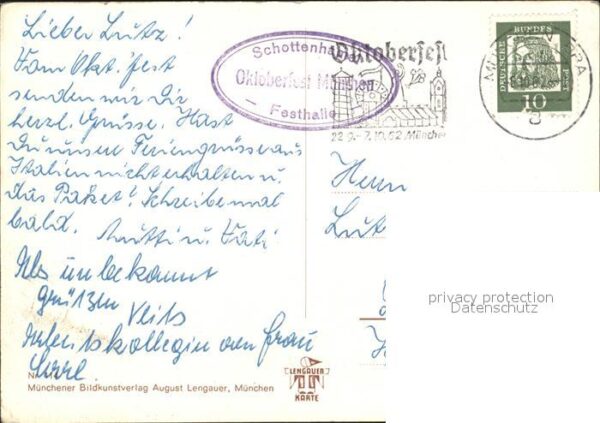 Lieber Lutz!
Vom Okt. fest
senden wir Dir
herzl. Grüsse. Hast
Du unsere Feriengrüsse aus
Italien nicht erhalten u.
das Paket? Schreibe mal
bald.
Mutti u. Vati
Als unbekannt
grüßen
Arbeitskollegin von Frau
Schottenhamel
Oktoberfest München
– Festhalle –
Oktoberfest
22.9.-7.10.62 München
DEUTSCHE BUNDESPOST
10
Herrn
privacy protection
Datenschutz
LENGAUER
KARTE
Münchener Bildkunstverlag August Lengauer, München